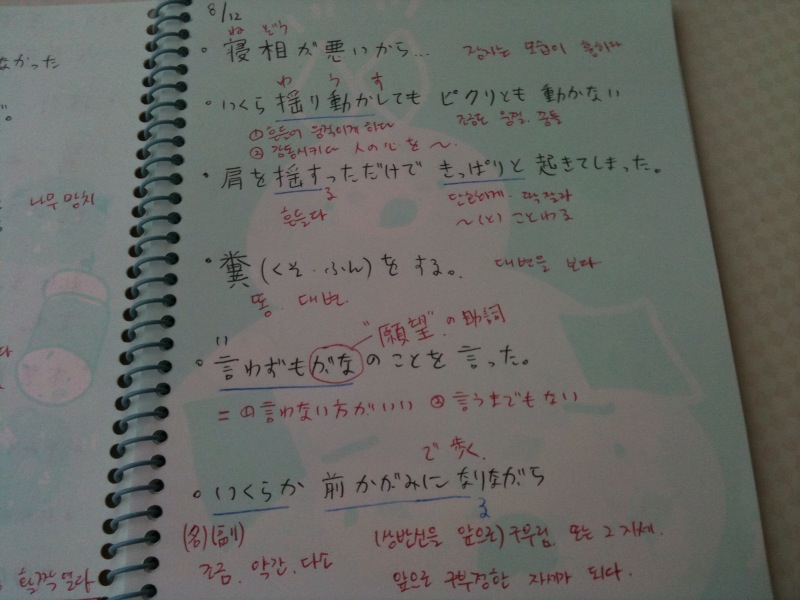 なかった
。
나무 망치
확짝 열다
8/12
ね ぞう
寝相が悪いから... 잠자는 모습이
わ う す
いくら揺り動かしても ピクリとも 動かない
① 흔들어 움직이게 하다 조금도 움찔. 꿈틀
② 감동시키다 人の心を〜.
肩を揺すっただけで きっぱりと 起きてしまった。
る
흔들다 단호하게. 딱 잘라
〜(と) ことわる
糞 (くそ・ふん)をする。 대변을 보다
똥. 대변.
"願望"の助詞
い
言わずもがなのことを言った。
= ①言わない方がいい ②言うまでもない
で歩く.
いくらか 前かがみになりながら
る
(名)(副) (상반신을 앞으로) 구부림. 또는 그 자세.
조금, 약간, 다소
앞으로 구부정한 자세가 되다.